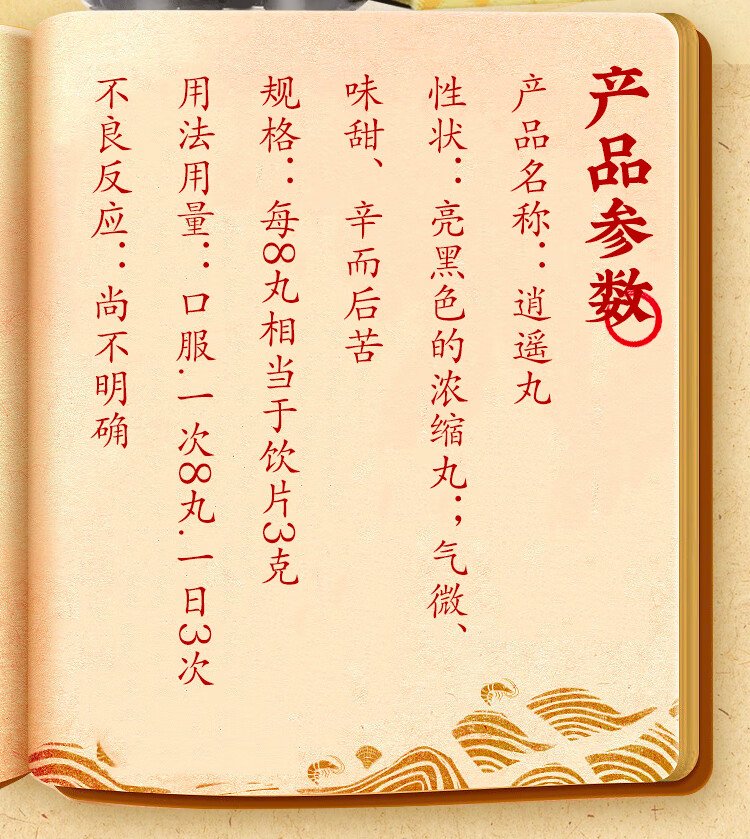 产品参数
产品名称：逍遥丸
性状：亮黑色的浓缩丸；气微、
味甜、辛而后苦
规格：每8丸相当于饮片3克
用法用量：口服.一次8丸.一日3次
不良反应：尚不明确